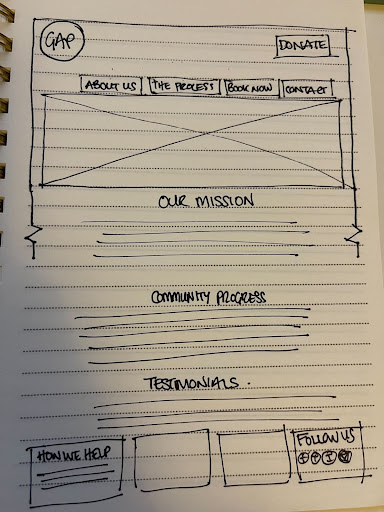 GAP
DONATE
ABOUT US THE PROCESS BOOK NOW CONTACT
OUR MISSION
COMMUNITY PROGRESS
TESTIMONIALS.
HOW WE HELP
FOLLOW US